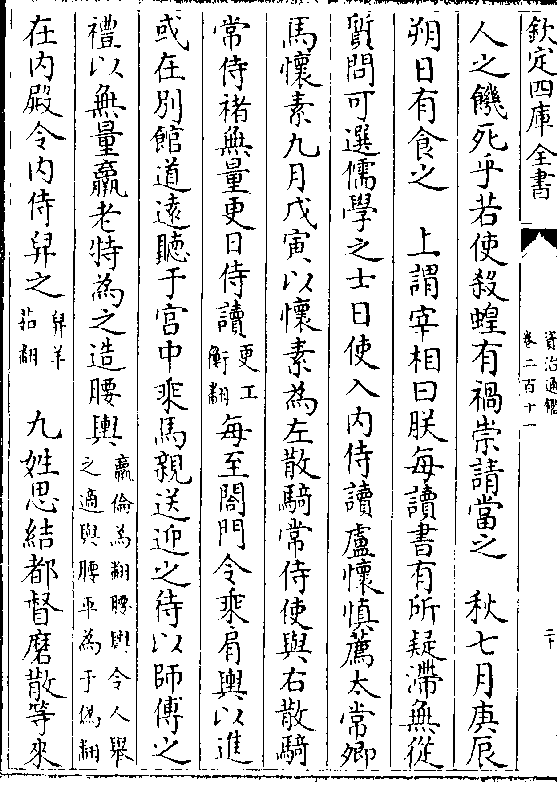 欽定四庫全書
資治通鑑
卷二百十一
二十
人之饑死乎若使殺蝗有禍崇請當之　秋七月庚辰
朔日有食之　上謂宰相曰朕每讀書有所疑滯無從
質問可選儒學之士日使入内侍讀盧懷慎薦太常卿
馬懷素九月戊寅以懷素為左散騎常侍使與右散騎
常侍褚無量更日侍讀更工衡翻每至閤門令乘肩輿以進
或在別館道遠聽于宫中乘馬親送迎之待以師傅之
禮以無量羸老特為之造腰輿羸倫為翻腰輿令人舉之適與腰平為于偽翻
在内殿令内侍舁之舁羊茹翻　九姓思結都督磨散等來